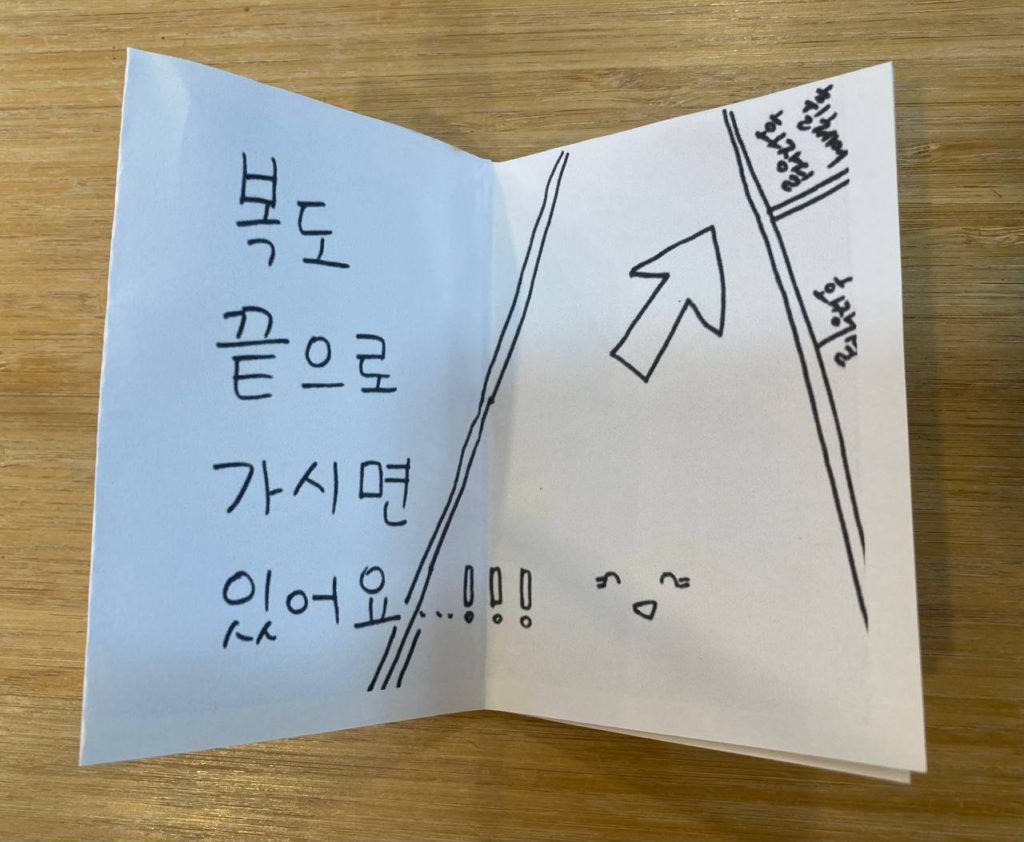 복도
끝으로
가시면
있어요...!!!